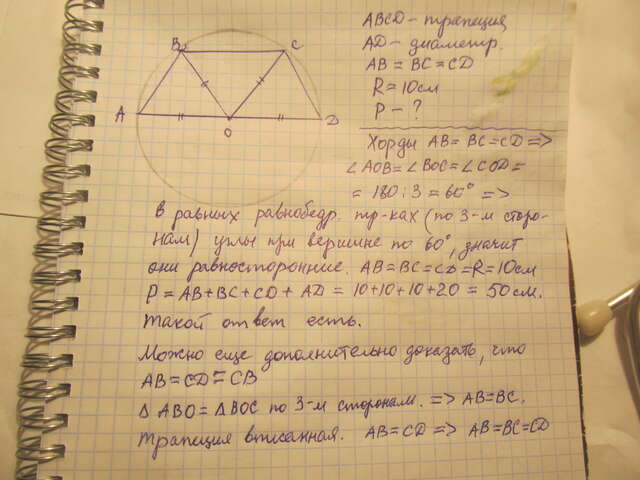 ABCD - трапеция
AD - диаметр.
AB = BC = CD
R = 10см
P - ?
B
C
A
O
D
Хорды AB = BC = CD =>
∠AOB = ∠BOC = ∠COD =
= 180 : 3 = 60° =>
В равных равнобедр. тр-ках (по 3-м сторо-
нам) углы при вершине по 60°, значит
они равносторонние. AB = BC = CD = R = 10см
P = AB + BC + CD + AD = 10 + 10 + 10 + 20 = 50 см.
Такой ответ есть.
Можно еще дополнительно доказать, что
AB = CD = CB
Δ ABO = Δ BOC по 3-м сторонам. => AB = BC.
Трапеция вписанная. AB = CD => AB = BC = CD